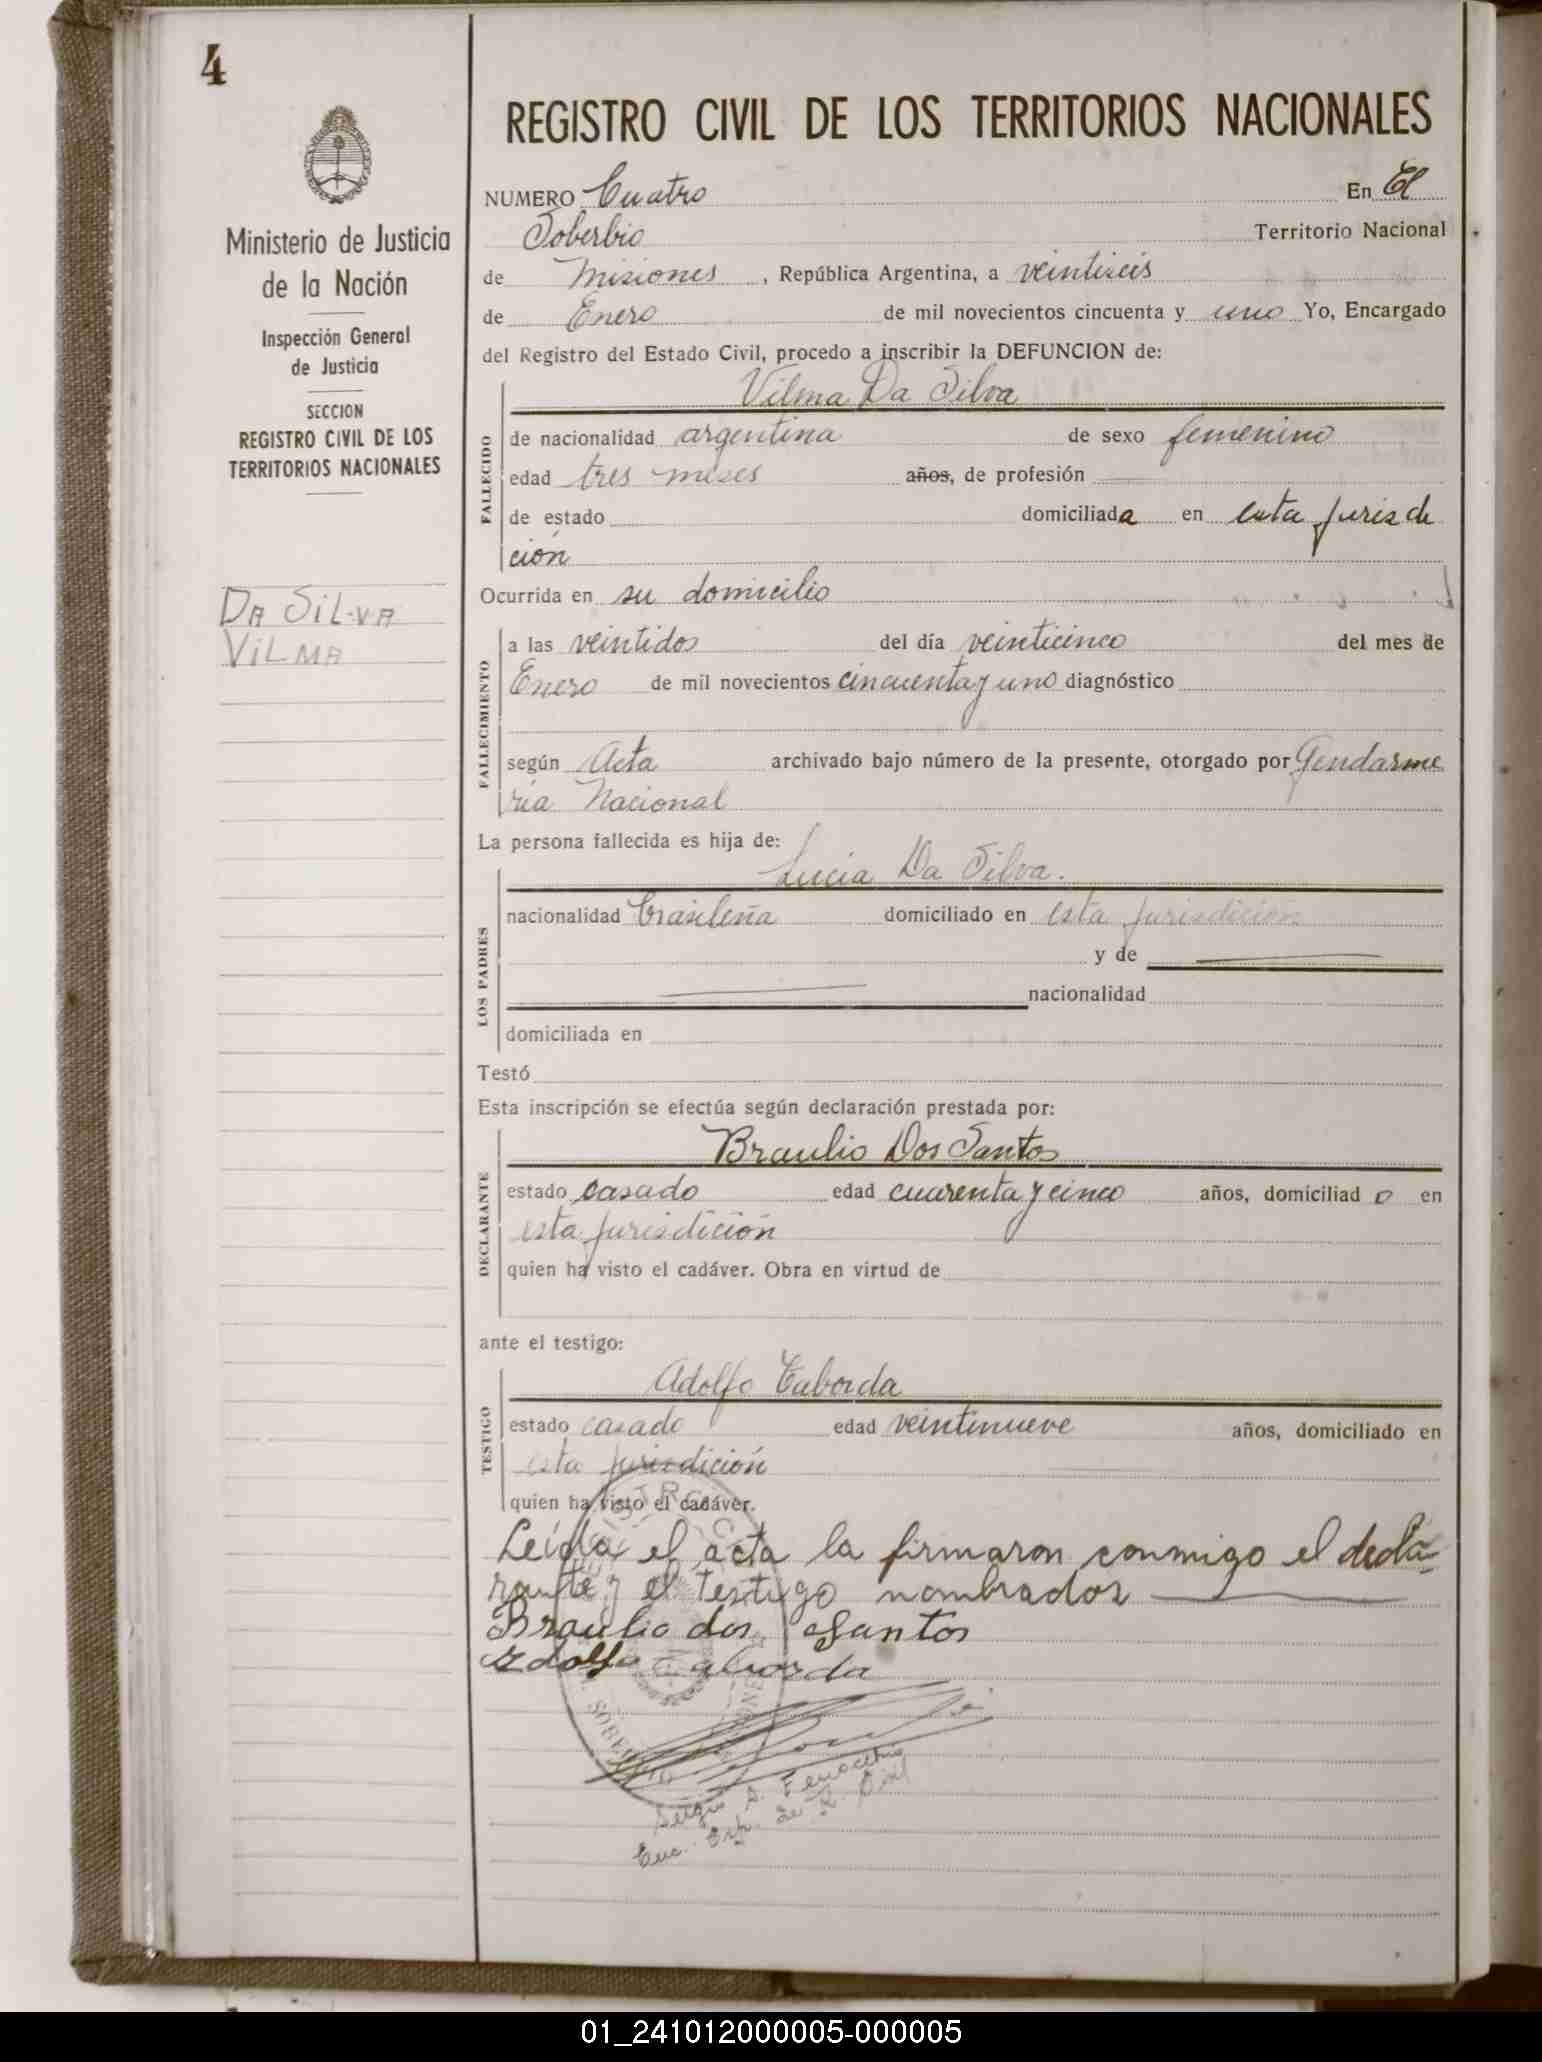 4
REGISTRO CIVIL DE LOS TERRITORIOS NACIONALES
Ministerio de Justicia
de la Nación
Inspección General
de Justicia
SECCION
REGISTRO CIVIL DE LOS
TERRITORIOS NACIONALES
DA SILVA
VILMA
NUMERO Cuatro En El
Soberbio Territorio Nacional
de Misiones, República Argentina, a veintiseis
de Enero de mil novecientos cincuenta y uno Yo, Encargado
del Registro del Estado Civil, procedo a inscribir la DEFUNCION de:
Vilma Da Silva
FALLECIDO
de nacionalidad argentina de sexo femenino
edad tres meses años, de profesión
de estado domiciliada en esta jurisdi
ción
Ocurrida en su domicilio
FALLECIMIENTO
a las veintidos del día veinticinco del mes de
Enero de mil novecientos cincuenta y uno diagnóstico
según Acta archivado bajo número de la presente, otorgado por Gendarme
ría Nacional
La persona fallecida es hija de:
Lucia Da Silva.
LOS PADRES
nacionalidad brasileña domiciliado en esta jurisdición
y de
nacionalidad
domiciliada en
Testó
Esta inscripción se efectúa según declaración prestada por:
Braulio Dos Santos
DECLARANTE
estado casado edad cuarenta y cinco años, domiciliado en
esta jurisdición
quien ha visto el cadáver. Obra en virtud de
ante el testigo:
Adolfo Taborda
TESTIGO
estado casado edad veintinueve años, domiciliado en
esta jurisdición
quien ha visto el cadáver.
Leída el acta la firmaron conmigo el decla-
rante y el testigo nombrados
Braulio dos Santos
Adolfo Taborda
SOBERBIO
Sergio A.
Enc. de R. Civil
01_241012000005-000005